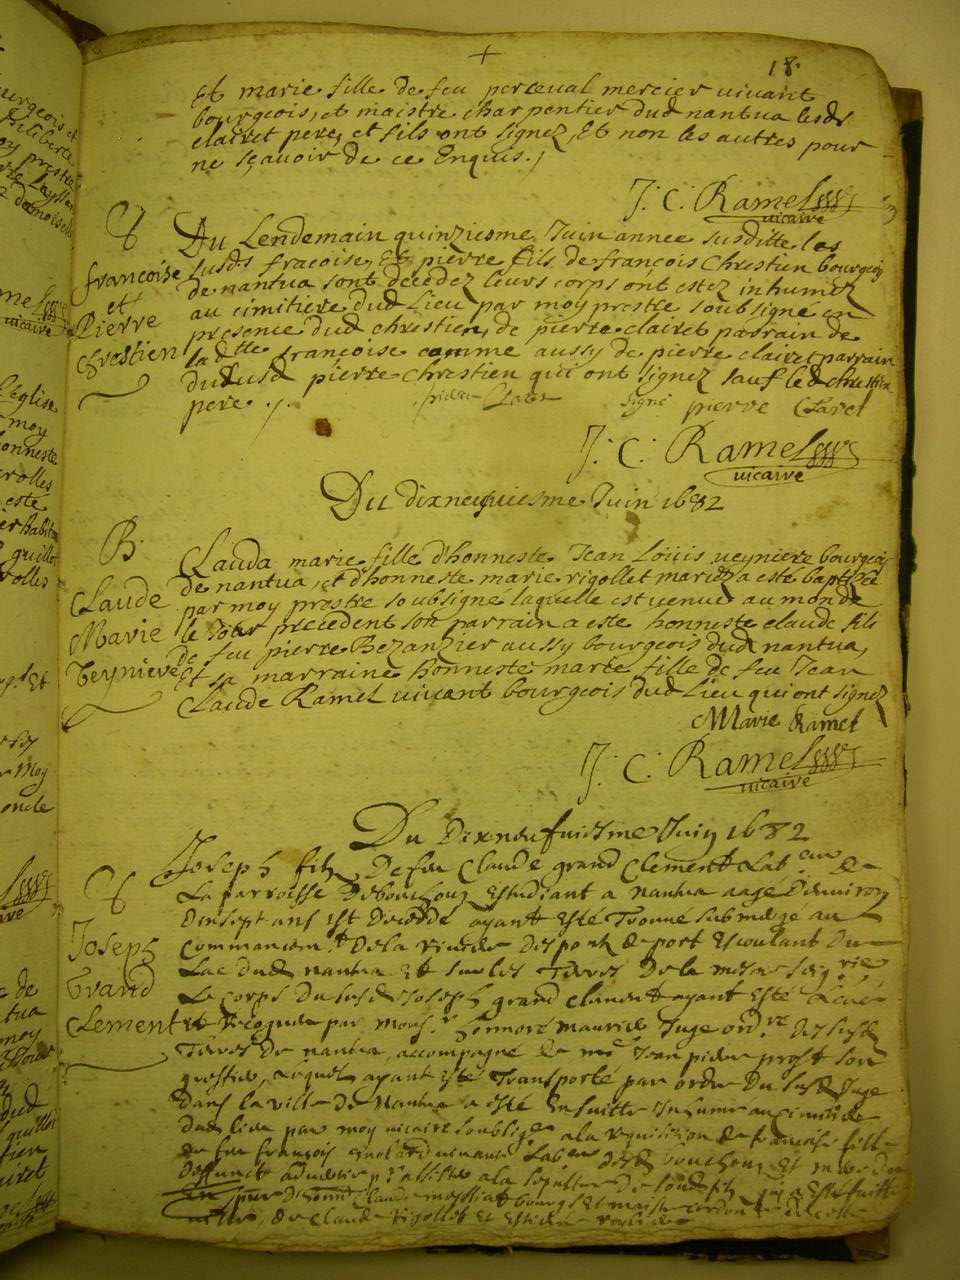 18.
Et marie fille de feu perceval mercier vivant
bourgeois, et maistre charpentier dud nantua lesds
clairet pere, et fils ont signez, Et non les autres pour
ne sçavoir de ce Enquis./
J: C: Ramel
vicaire
françoise
et
Pierre
chrestien
Du Lendemain quinziesme Juin annee susditte les
susds fracoise, Et pierre fils de françois Chrestien bourgeois
de nantua sont decedez leurs corps ont estez inhumez
au cimitiere dud Lieu par moy prestre soubsigné en
presence dud chrestien, de pierre clairet parrain de
ladtte françoise comme aussy de pierre clairet parrain
dudusd pierre Chrestien qui ont signez sauf led chrestien
pere ./.
signé pierre Claret
J: C: Ramel
vicaire
Du dixneufuiesme Juin 1682
B.
Claude
Marie
Veyniere
Clauda marie fille d'honneste Jean Loüis veyniere bourgeois
de nantua, et d'honneste marie rigollet mariez a esté baptisée
par moy prestre soubsigné laquelle est venue au monde
le Jour precedent son parrain a este honneste claude fils
de feu pierre Bezanzier aussy bourgeois dud nantua,
Et sa marraine honneste marie fille de feu Jean
Claude Ramel vivant bourgeois dud Lieu qui ont signez
Marie Ramel
J: C: Ramel
vicaire
Du Dixneufuiesme Juin 1682
Joseph
Grand
Clement
Joseph filz De feu Claude grand Clement Lab eur de
La parroisse Debouchoux Estudiant a nantua aagé Denviron
Dixsept ans Est Decedde ayant Esté Trouué submergé au
Commancemt De la riviere des pont de port Escoulant Du
Lac dud nantua Et sur les Terres De la mesme Seigrie
Le corps du susd Joseph grand clement ayant Esté Leué
Et Recogneu par monsr honnoré maurice Juge ordre des susd
Terres de nantua, accompagné de me Jean pierre prost son
greffier, Lequel ayant Esté Transporté par ordre Du susd Juge
Dans la ville de Nantua a esté Ensuitte Inhumé au cimitiere
Dud lieu par moy vicaire soubsigné a la requisition de francoise fille
de feu françois vivant Laber desd bouchoux Et mere du
Deffunct